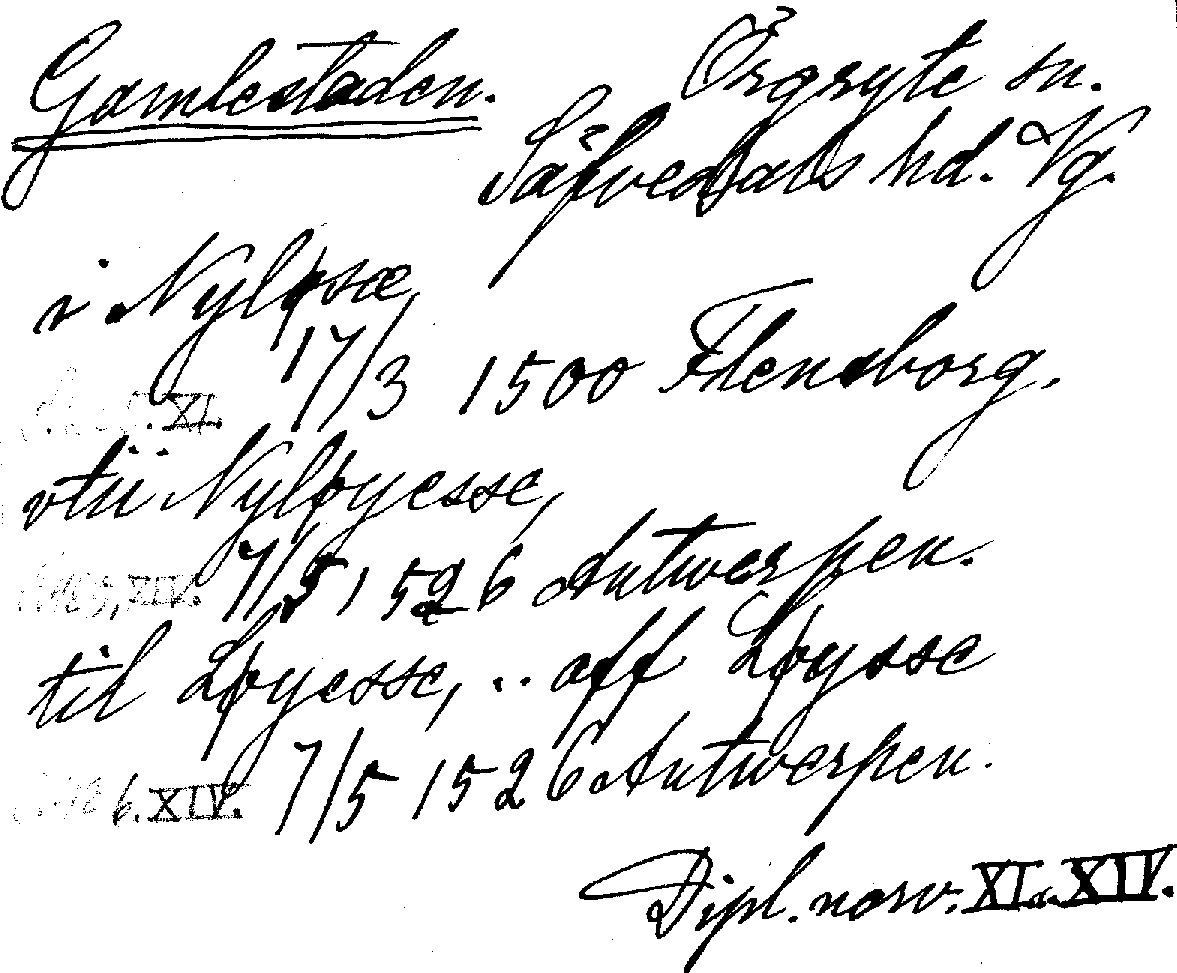 Gamlestaden. Örgryte sn.
Säfvedals hd. Vg.
i Nyløsæ,
17/3 1500 Flensborg.
XI.
vtii Nyløyesse,
XIV. 7/5 1526 Antwerpen.
til Løyesse, .. aff Løysse
6. XIV. 7/5 1526 Antwerpen.
Dipl. norv. XI. o. XIV.